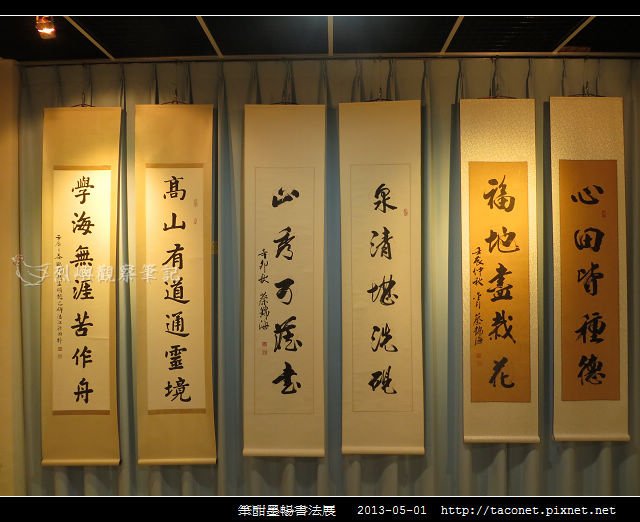 心田皆種德
福地盡栽花
壬辰仲秋 蔡錦海
泉清堪洗硯
山秀可藏書
辛卯秋 蔡錦海
高山有道通靈境
學海無涯苦作舟
觀察筆記
筆酣墨暢書法展 2013-05-01 http://taconet.pixnet.net